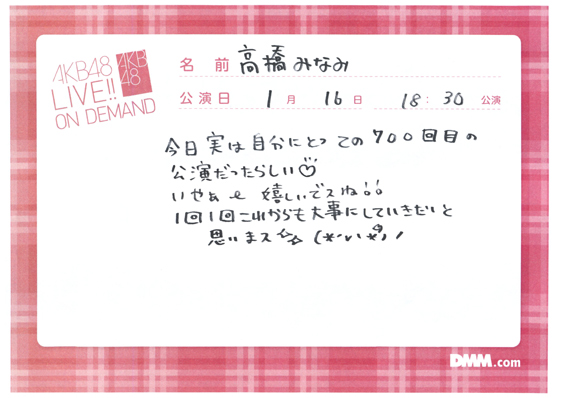 AKB48
LIVE!!
ON DEMAND
AKB
48
名 前 高橋みなみ
公演日 1月 16日 18:30 公演
今日実は自分にとっての700回目の
公演だったらしい♡
いやぁ〜嬉しいでスね!!
1回1回これからも大事にしていきたいと
思いまス☆☆
DMM.com